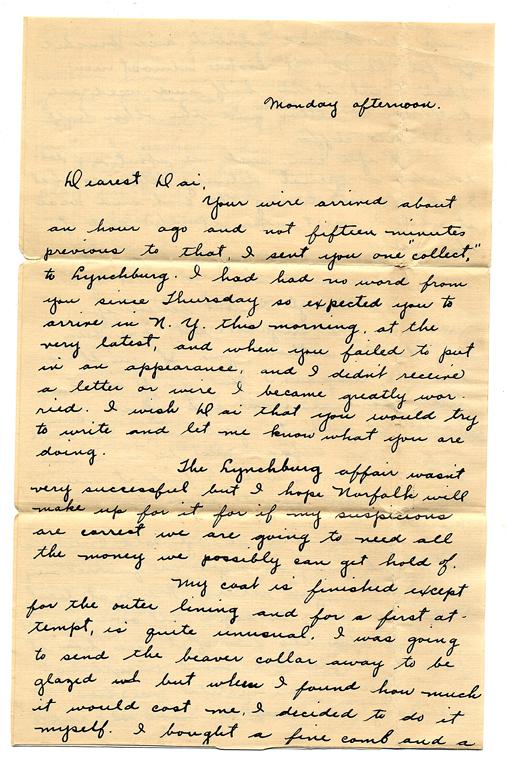 Monday afternoon.
Dearest Dai,
Your wire arrived about
an hour ago and not fifteen minutes
previous to that, I sent you one "collect,"
to Lynchburg. I had had no word from
you since Thursday so expected you to
arrive in N. Y. this morning, at the
very latest, and when you failed to put
in an appearance, and I didn't receive
a letter or wire I became greatly wor-
ried. I wish Dai that you would try
to write and let me know what you are
doing.
The Lynchburg affair wasn't
very successful but I hope Norfolk will
make up for it for if my suspicions
are correct we are going to need all
the money we possibly can get hold of.
My coat is finished except
for the outer lining and for a first at-
tempt, is quite unusual. I was going
to send the beaver collar away to be
glazed but when I found how much
it would cost me, I decided to do it
myself. I bought a fine comb and a